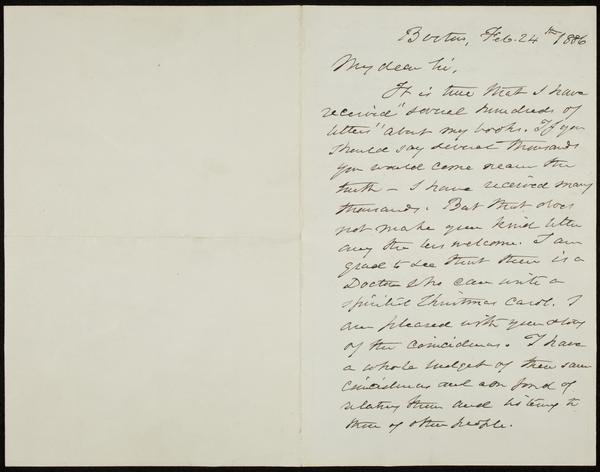 Boston, Feb. 24th 1886
My dear Sir,
It is true that I have
received "several hundreds of
letters" about my books. If you
should say several thousands
you would come nearer the
truth – I have received many
thousands. But that does
not make your kind letter
any the less welcome. I am
glad to see that there is a
Doctor who can write a
spirited Christmas Carol. I
am pleased with your story
of the coincidences. I have
a whole budget of these same
coincidences and am fond of
relating them and listening to
those of other people.